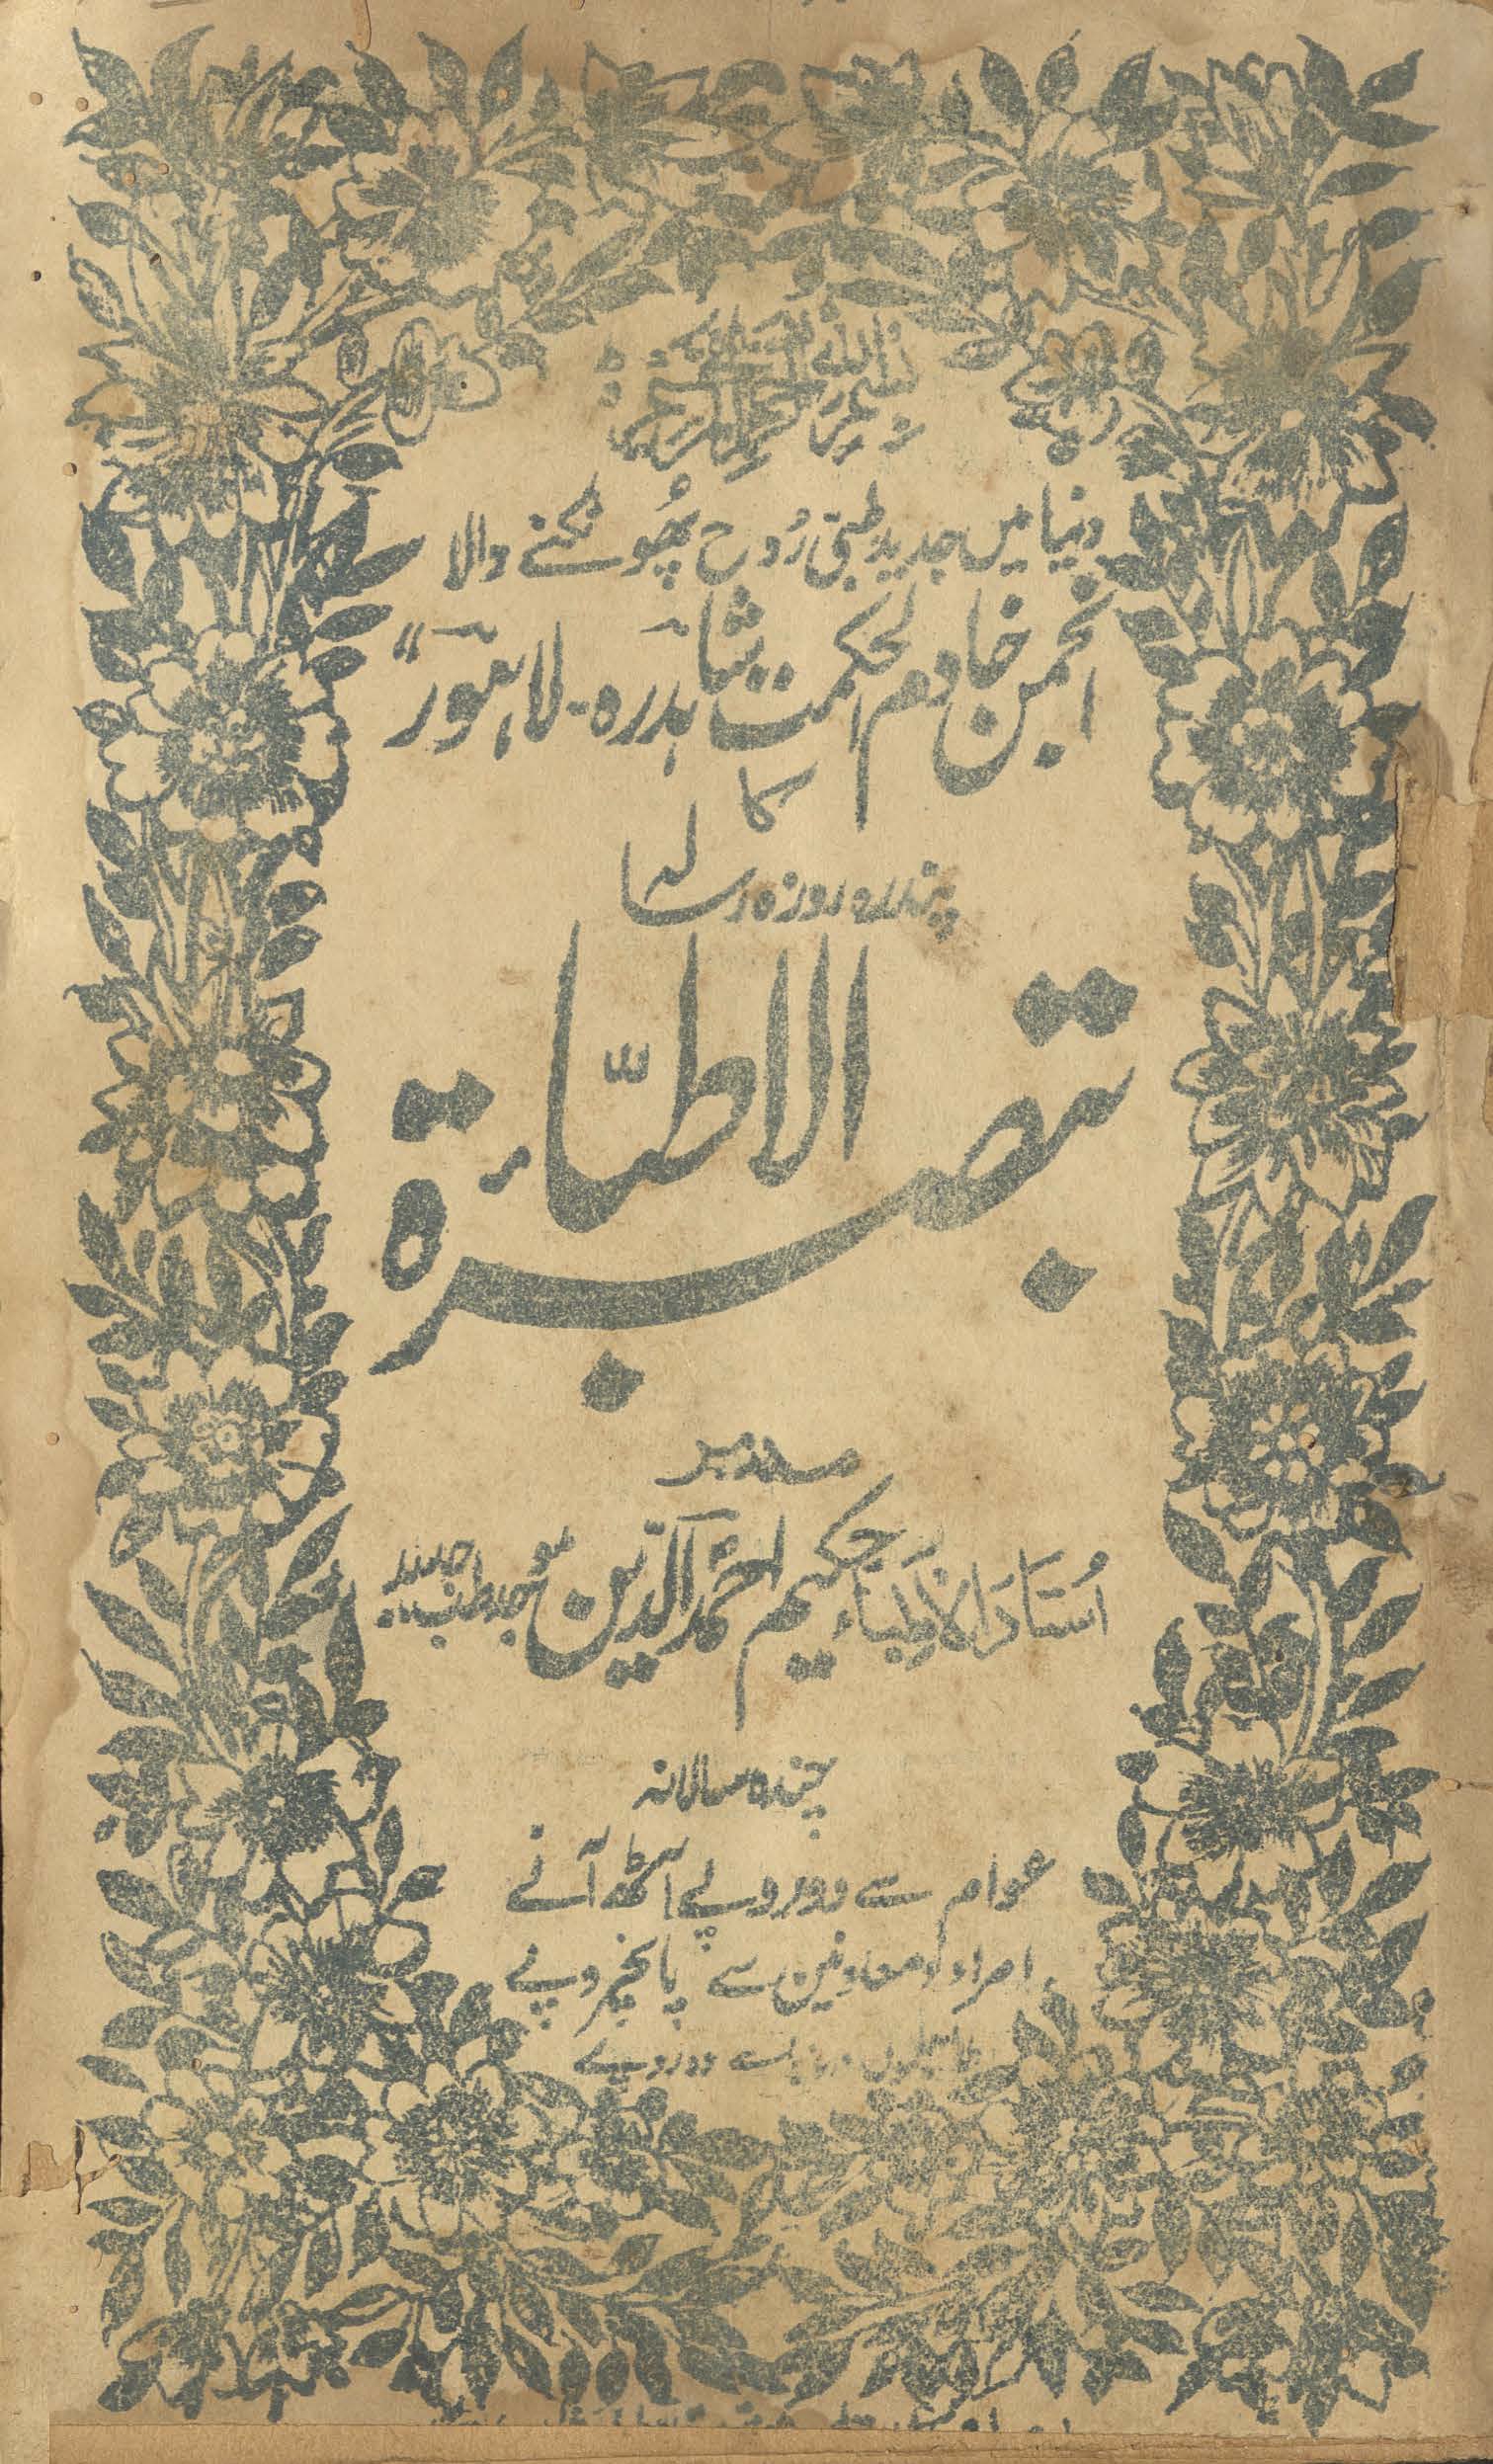 بسم اللہ الرحمن الرحیم
دنیا میں جدید طبی رُوح پھُونکنے والا
انجمن خادم الحکمت شاہدرہ - لاہور"
کا
پندرہ روزہ رسالہ
تبصرۃ الاطبّاء
مدیر
اُستاذ الاطباء حکیم احمد الدین موجد طب جدید
چندہ سالانہ
عوام سے دو روپے آٹھ آنے
امراء و معاونین سے پانچ روپے
سے دو روپے